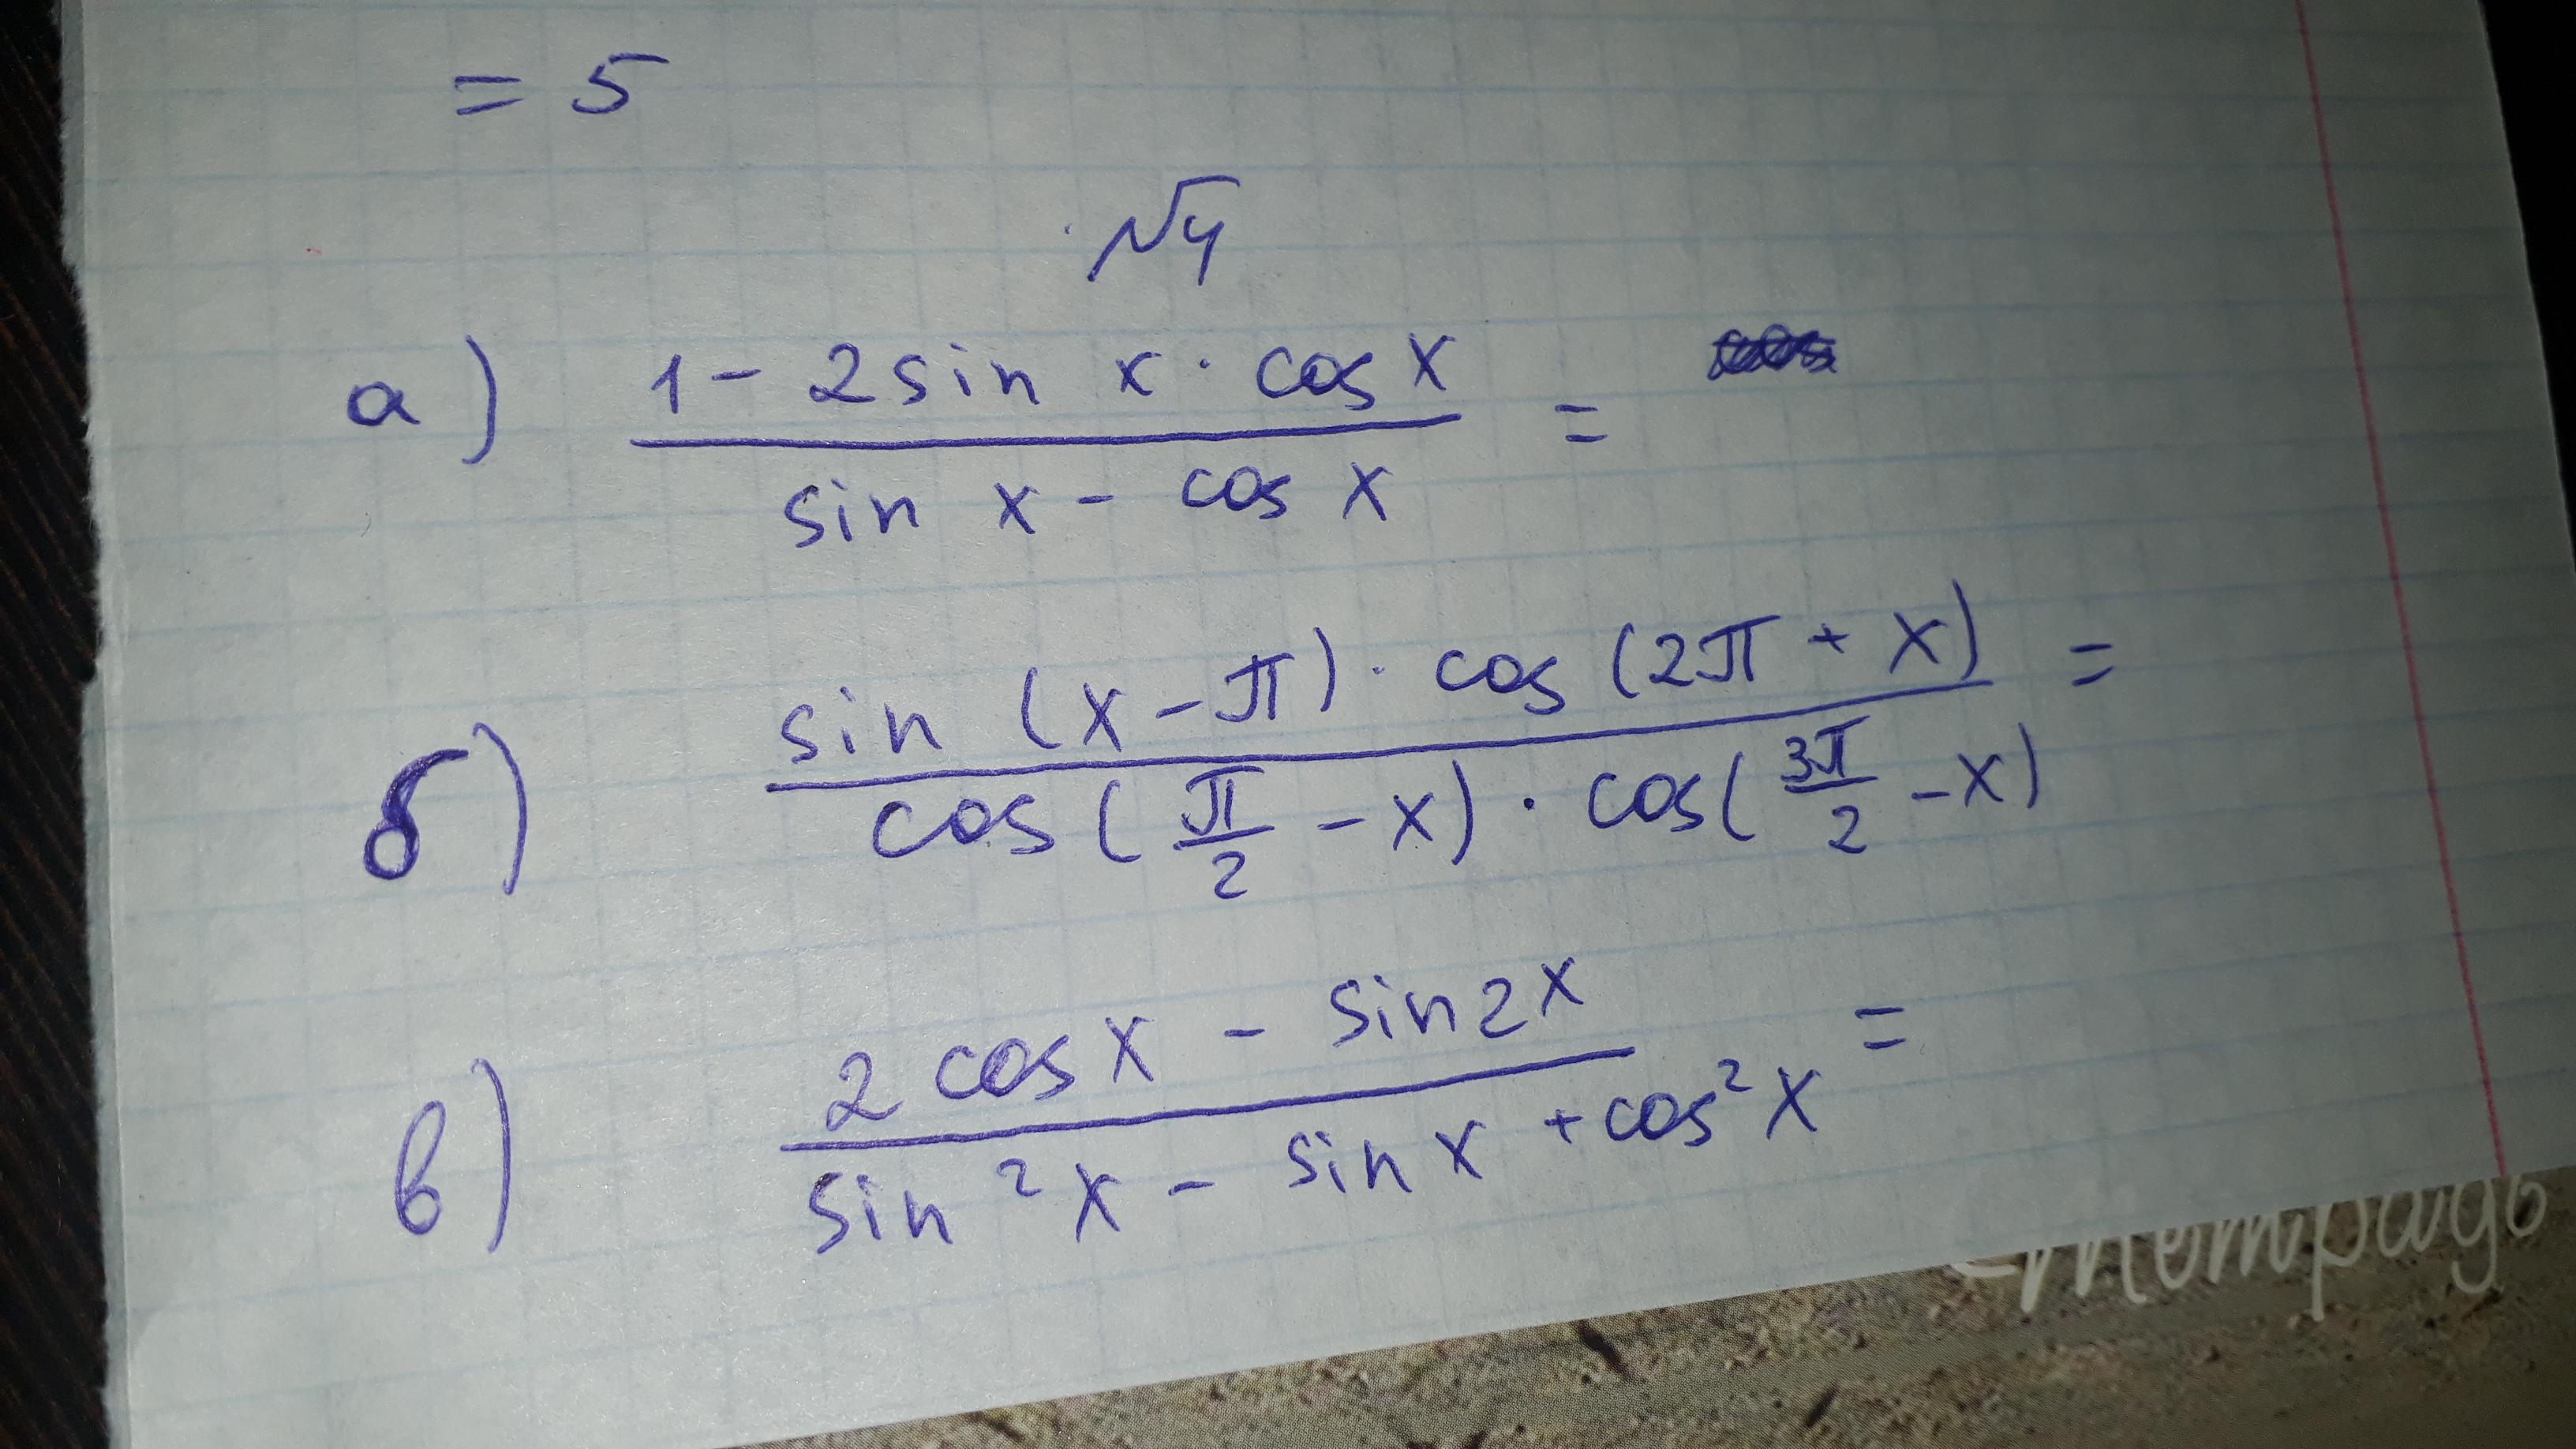 = 5
№4
а) (1 - 2 sin x · cos x) / (sin x - cos x) =
б) (sin (x - π) · cos (2π + x)) / (cos (π/2 - x) · cos (3π/2 - x)) =
в) (2 cos x - sin 2x) / (sin² x - sin x + cos² x) =